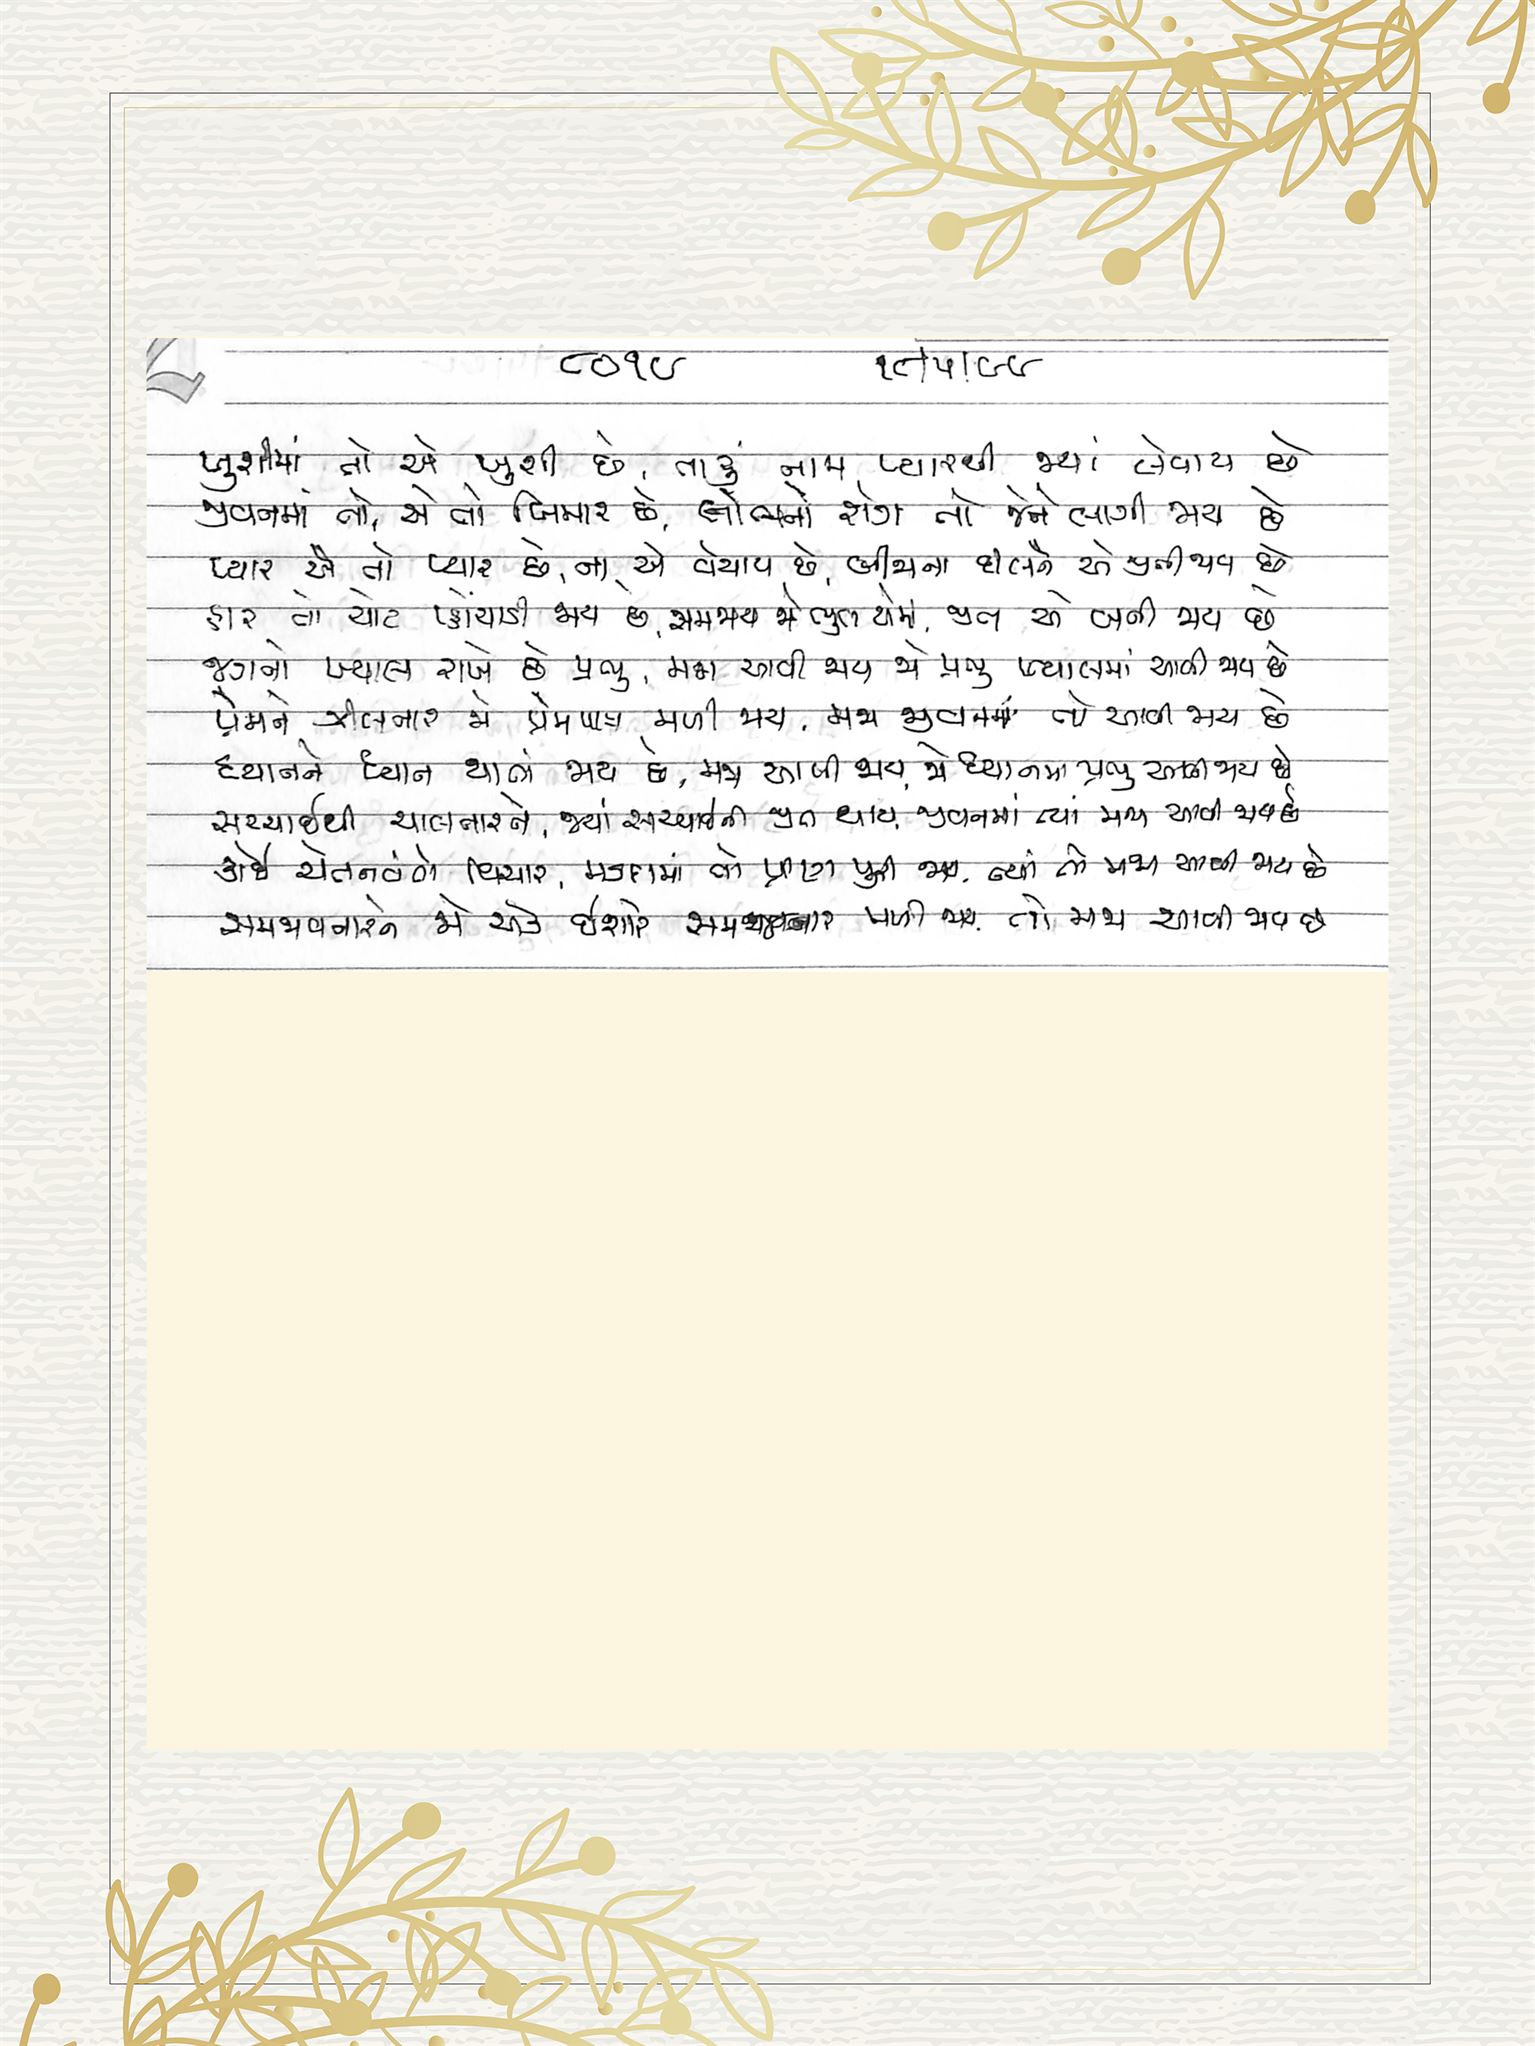 ૮૦૧૯ ૧૮/૫/૯૯
ખુશીમાં તો એ ખુશી છે, તારું નામ પ્યારથી જ્યાં લેવાય છે
જીવનમાં તો, એ તો બિમાર છે, લોભનો રોગ તો જેને લાગી જાય છે
પ્યાર એ તો પ્યાર છે, ના એ વેચાય છે, બીજાના દીલને એ જીતી જાય છે
હાર તો ચોટ પહોંચાડી જાય છે, સમજાય જો ભુલ એમાં, જીત એ બની જાય છે
જગનો ખ્યાલ રાખે છે પ્રભુ, મજા આવી જાય જો પ્રભુ ખ્યાલમાં આવી જાય છે
પ્રેમને ઝીલનાર જો પ્રેમપાત્ર મળી જાય, મજા જીવનમાં તો આવી જાય છે
ધ્યાનને ધ્યાન થાતાં જાય છે, મજા આવી જાય, જો ધ્યાનમાં પ્રભુ આવી જાય છે
સચ્ચાઈથી ચાલનારને, જ્યાં સચ્ચાઈની જીત થાય, જીવનમાં ત્યાં મજા આવી જાય છે
કોઈ ચેતનવંતો વિચાર, મડદામાં જો પ્રાણ પુરી જાય, ત્યાં તો મજા આવી જાય છે
સમજાવનારને જો એક ઈશારે સમજનાર મળી જાય, તો મજા આવી જાય છે